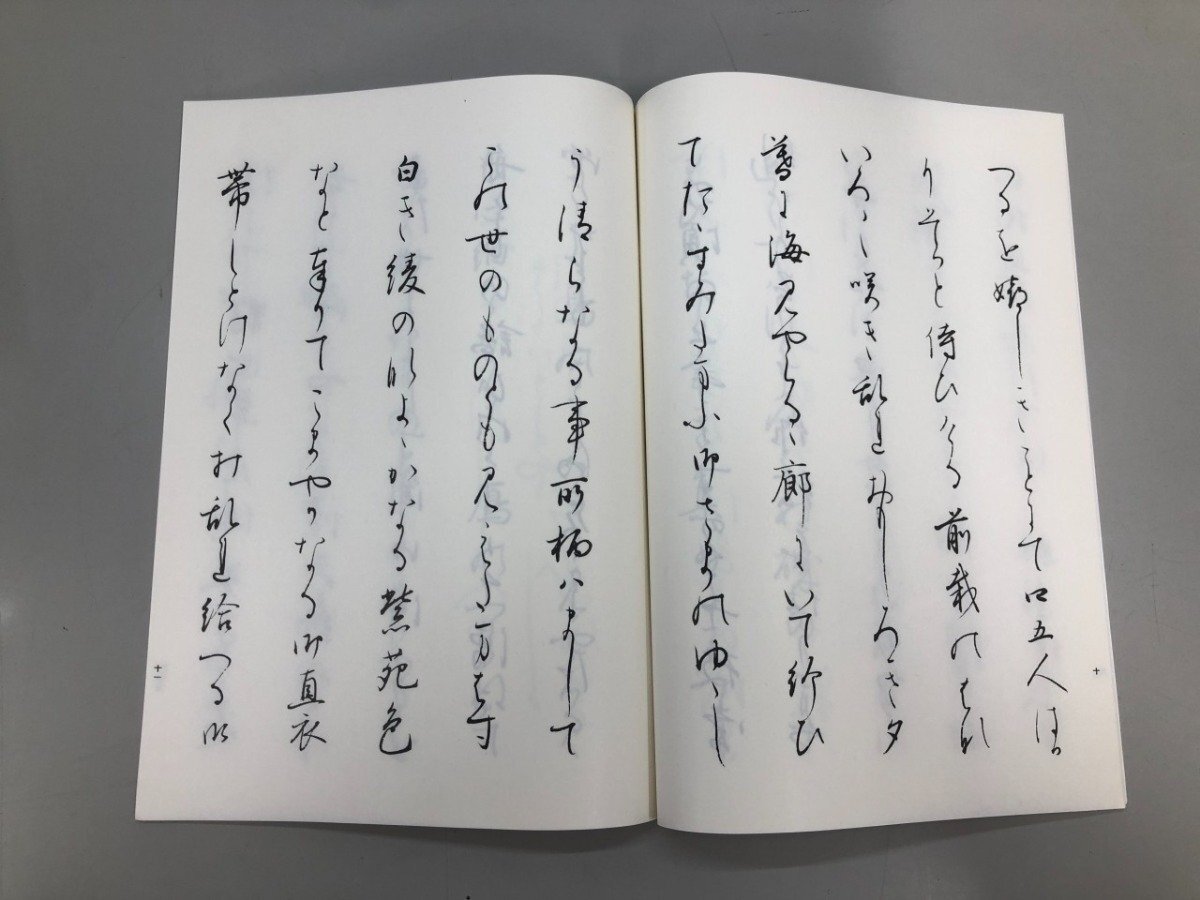 つるを嬉しきことにて四五人はか
りそつと侍ひける前栽の花
いろ〳〵咲き乱れおもしろき夕
暮に海見やらるゝ廊にいて給ひ
てたゝすみたまふ御さまのゆゝし
十
う清らなる事所柄はまして
この世のものとも見えたまはす
白き綾のなよゝかなる紫苑色
なと奉りてこまやかなる御直衣
帯しとけなく打乱れ給へる御
十一